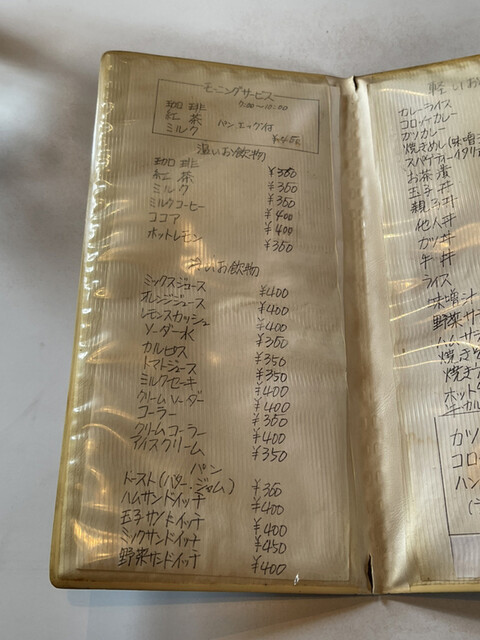 モーニングサービス
7:00〜10:00
珈琲
紅茶
ミルク パン エッグ付
温いお飲物
珈琲 ¥350
紅茶 ¥350
ミルク ¥350
ミルクコーヒー ¥400
ココア ¥400
ホットレモン ¥350
お飲物
ミックスジュース ¥400
オレンジジュース ¥400
レモンスカッシュ ¥400
ソーダー水 ¥350
カルピス ¥350
トマトジュース ¥350
ミルクセーキ ¥400
クリームソーダー ¥400
コーラー ¥350
クリームコーラー ¥400
アイスクリーム ¥350
パン
トースト(バター、ジャム) ¥350
ハムサンドイッチ ¥400
玉子サンドイッチ ¥400
ミックサンドイッチ ¥450
野菜サンドイッチ ¥400
軽いお
カレーライス
コロッケカレー
カツカレー
焼きめし(味噌
スパゲティーイタリア
お茶漬
玉子丼
親子丼
他人丼
カツ丼
牛丼
ライス
味噌汁
野菜サ
ハムサラ
焼きそ
焼き
ホット
カツ
コロ
ハン